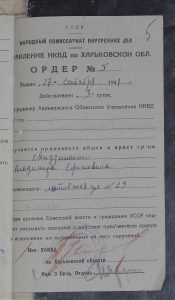 5
УССР
НАРОДНЫЙ КОМИССАРИАТ ВНУТРЕННИХ ДЕЛ
АВЛЕНИЕ НКВД по ХАРЬКОВСКОЙ ОБЛ.
ОРДЕР № 5
Выдан 27 сентября 1941 г.
Действителен 3 суток
трудник Харьковского Областного Управления НКВД
учается произвести обыск и арест гр-на
Свидзинского
Владимира
ул № 29
органам Советской власти и гражданам УССР над-
оказывать законное содействие предъявителю ордера
исполнении им возложенных на него поручений.
Нач. УНКВД
по Харьковской области
Нач. 3 Спец. Отдела